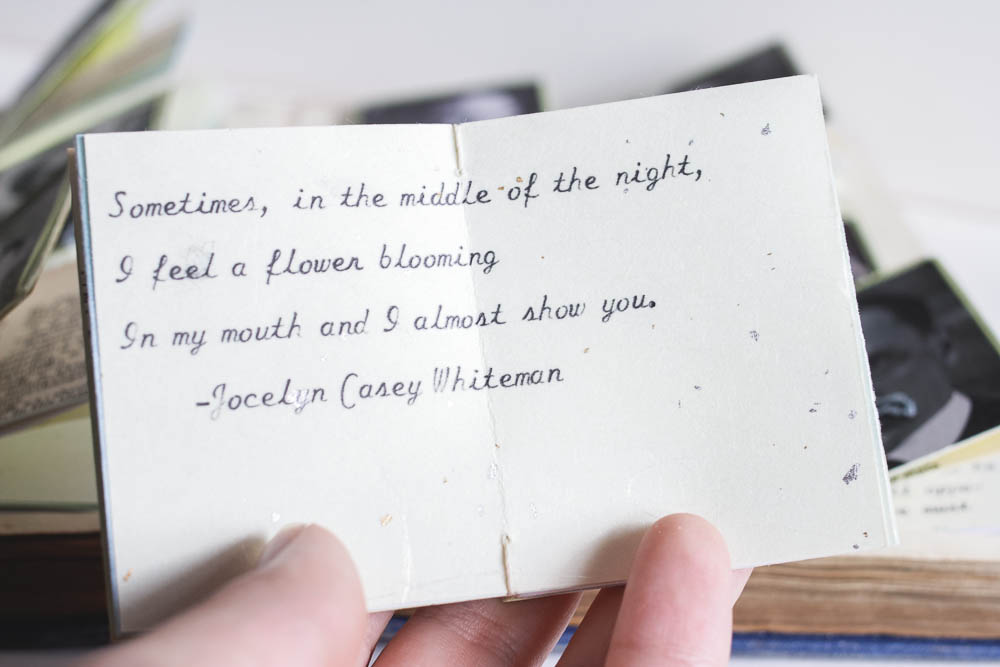 Sometimes, in the middle of the night,
I feel a flower blooming
In my mouth and I almost show you.
-Jocelyn Casey Whiteman